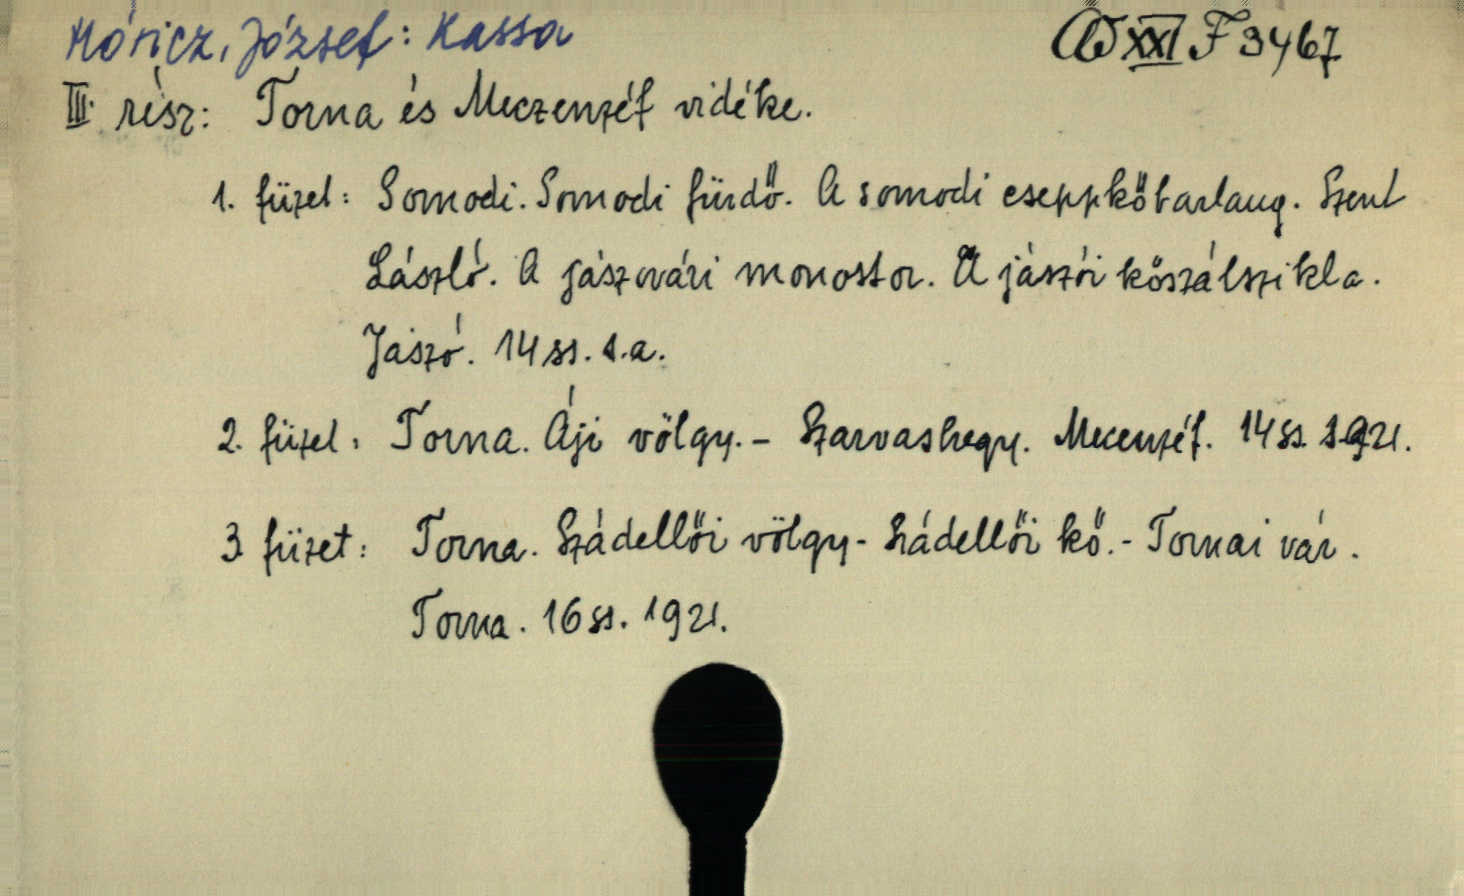 Móricz, József: Kassa
XXI F 3467
III. rész: Torna és Meczenzéf vidéke.
1. füzet: Somodi. Somodi fürdő. A somodi cseppkőbarlang. Szent
László. A jászóvári monostor. A jászói kőszálszikla.
Jászó. 14 ss. s.a.
2. füzet: Torna. Áji völgy. - Szarvashegy. Mecenzéf. 14 ss. 1921.
3 füzet: Torna. Szádellői völgy - Szádellői kő. - Tornai vár.
Torna. 16 ss. 1921.